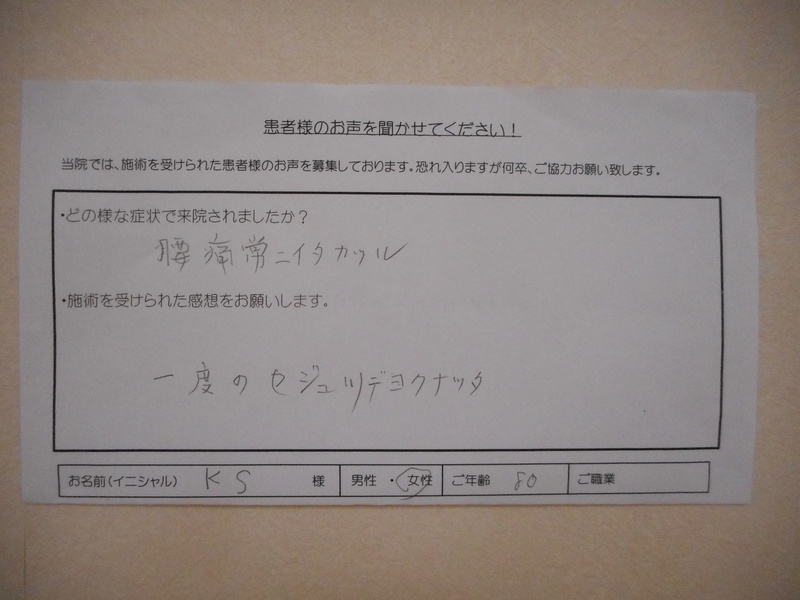 患者様のお声を聞かせてください！
当院では、施術を受けられた患者様のお声を募集しております。恐れ入りますが何卒、ご協力お願い致します。
・どの様な症状で来院されましたか？
腰痛常ニイタカツル
・施術を受けられた感想をお願いします。
一度のセジュツデヨクナッタ
お名前(イニシャル) KS 様 男性・女性 ご年齢 80 ご職業